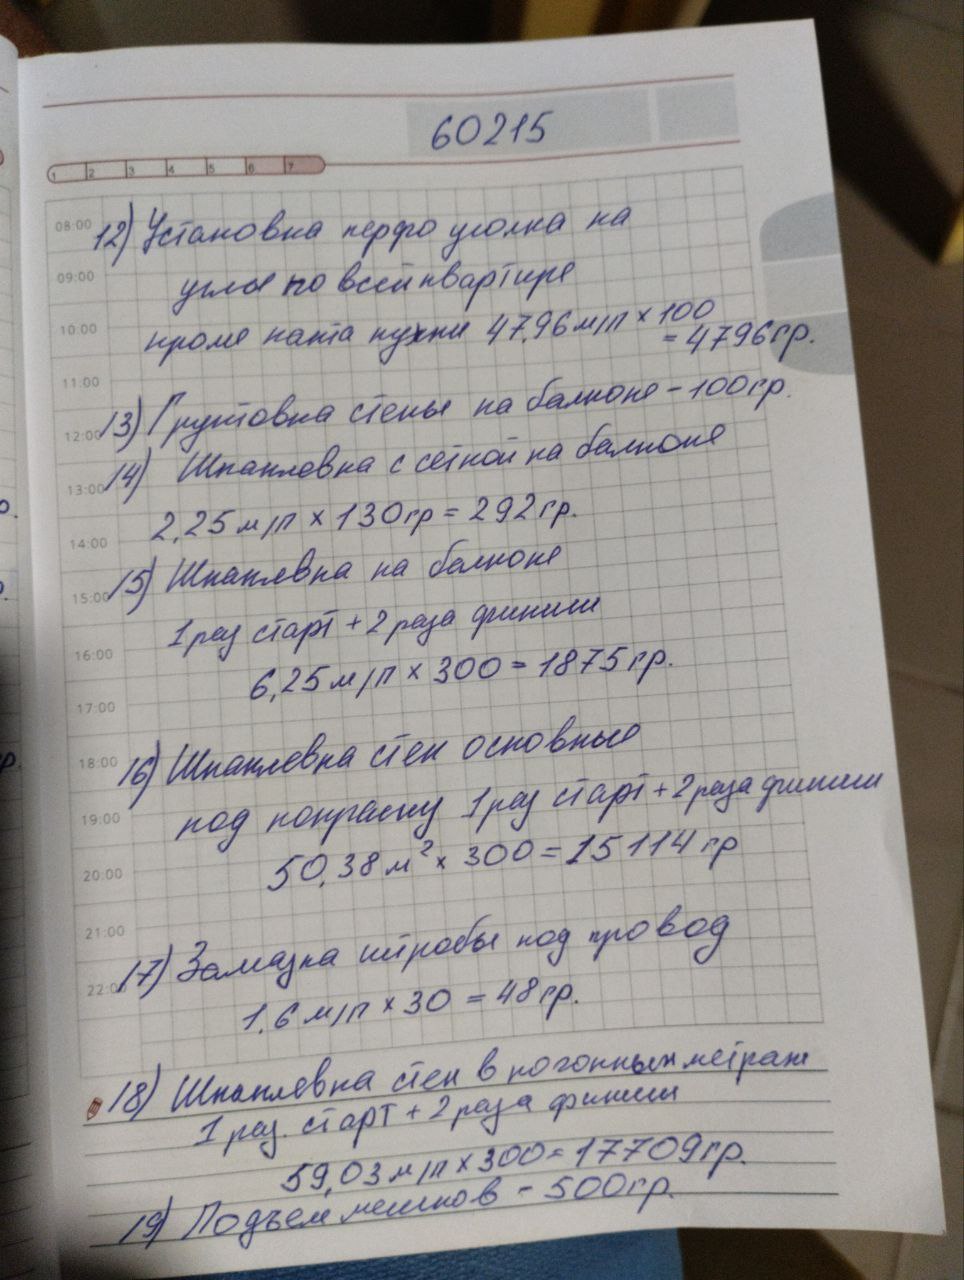 60215
1 2 3 4 5 6 7
08:00
12) Установка перфо уголка на
09:00
углы по всей квартире
10:00
кроме ската кухни 47,96 м/п × 100
= 4796 гр.
11:00
13) Грунтовка стены на балконе - 100 гр.
12:00
14) Шпаклевка с сеткой на балконе
13:00
2,25 м/п × 130 гр = 292 гр.
14:00
15) Шпаклевка на балконе
15:00
1 раз старт + 2 раза финиш
16:00
6,25 м/п × 300 = 1875 гр.
17:00
16) Шпаклевка стен основные
18:00
под покраску 1 раз старт + 2 раза финиш
19:00
50,38 м² × 300 = 15114 гр
20:00
21:00
17) Замазка штробы под провод
22:00
1,6 м/п × 30 = 48 гр.
18) Шпаклевка стен в погонных метраж
1 раз. старт + 2 раза финиш
59,03 м/п × 300 = 17709 гр.
19) Подъем мешков - 500 гр.